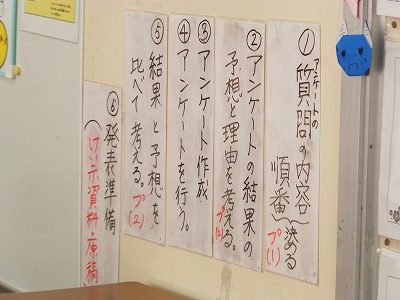 ① アンケートの
質問の内容
順番
決る
プ(1)
② アンケートの結果の
予想と理由を考える。
③ アンケート作成
④ アンケートを行う。
⑤ 結果と予想を
比べて考える。プ(2)
⑥ 発表準備
(けい示資料・原稿